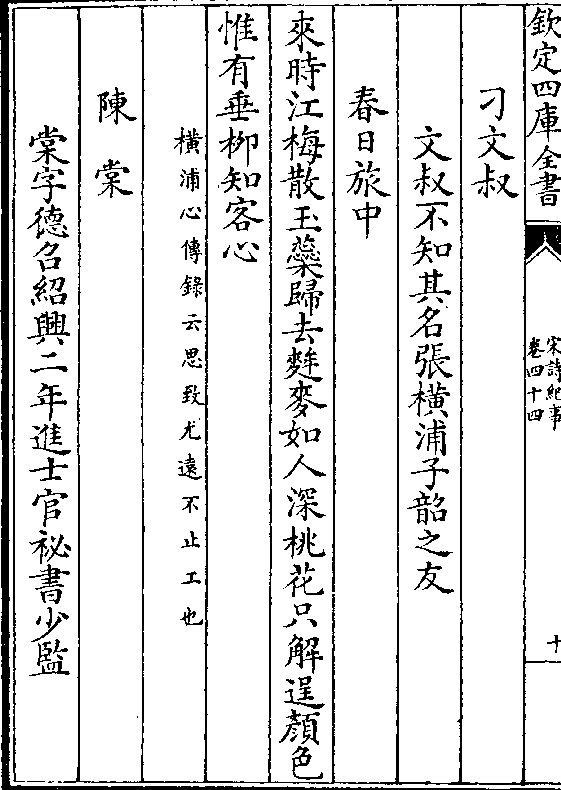 欽定四庫全書
宋詩紀事
卷四十四
十
刁文叔
文叔不知其名張橫浦子韶之友
春日旅中
來時江梅散玉蘂歸去麰麥如人深桃花只解逞顔色
惟有垂柳知客心
橫浦心傳錄云思致尤遠不止工也
陳棠
棠字德召紹興二年進士官祕書少監